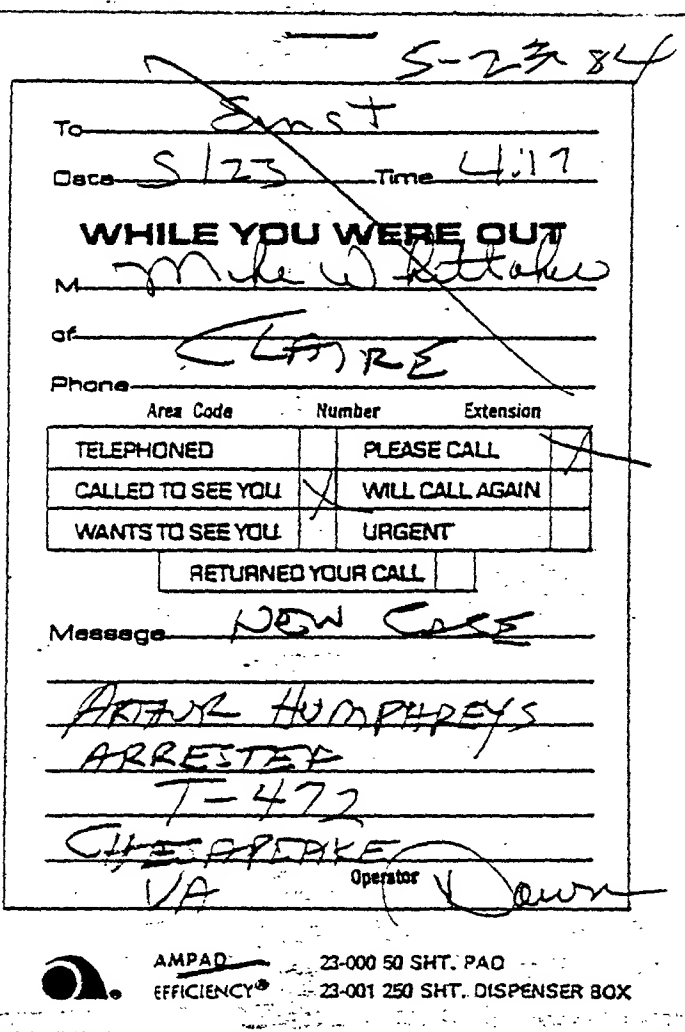 5-23 84
To Ernst
Date 5/23 Time 4:17
WHILE YOU WERE OUT
M Mike Whittaker
of
CLAIRE
Phone
Area Code Number Extension
TELEPHONED PLEASE CALL X
CALLED TO SEE YOU X WILL CALL AGAIN
WANTS TO SEE YOU URGENT
RETURNED YOUR CALL
Message NEW CASE
ARTHUR HUMPHREYS
ARRESTED
T-472
CHESAPEAKE
VA Operator Dawn
AMPAD 23-000 50 SHT. PAD
EFFICIENCY® 23-001 250 SHT. DISPENSER BOX